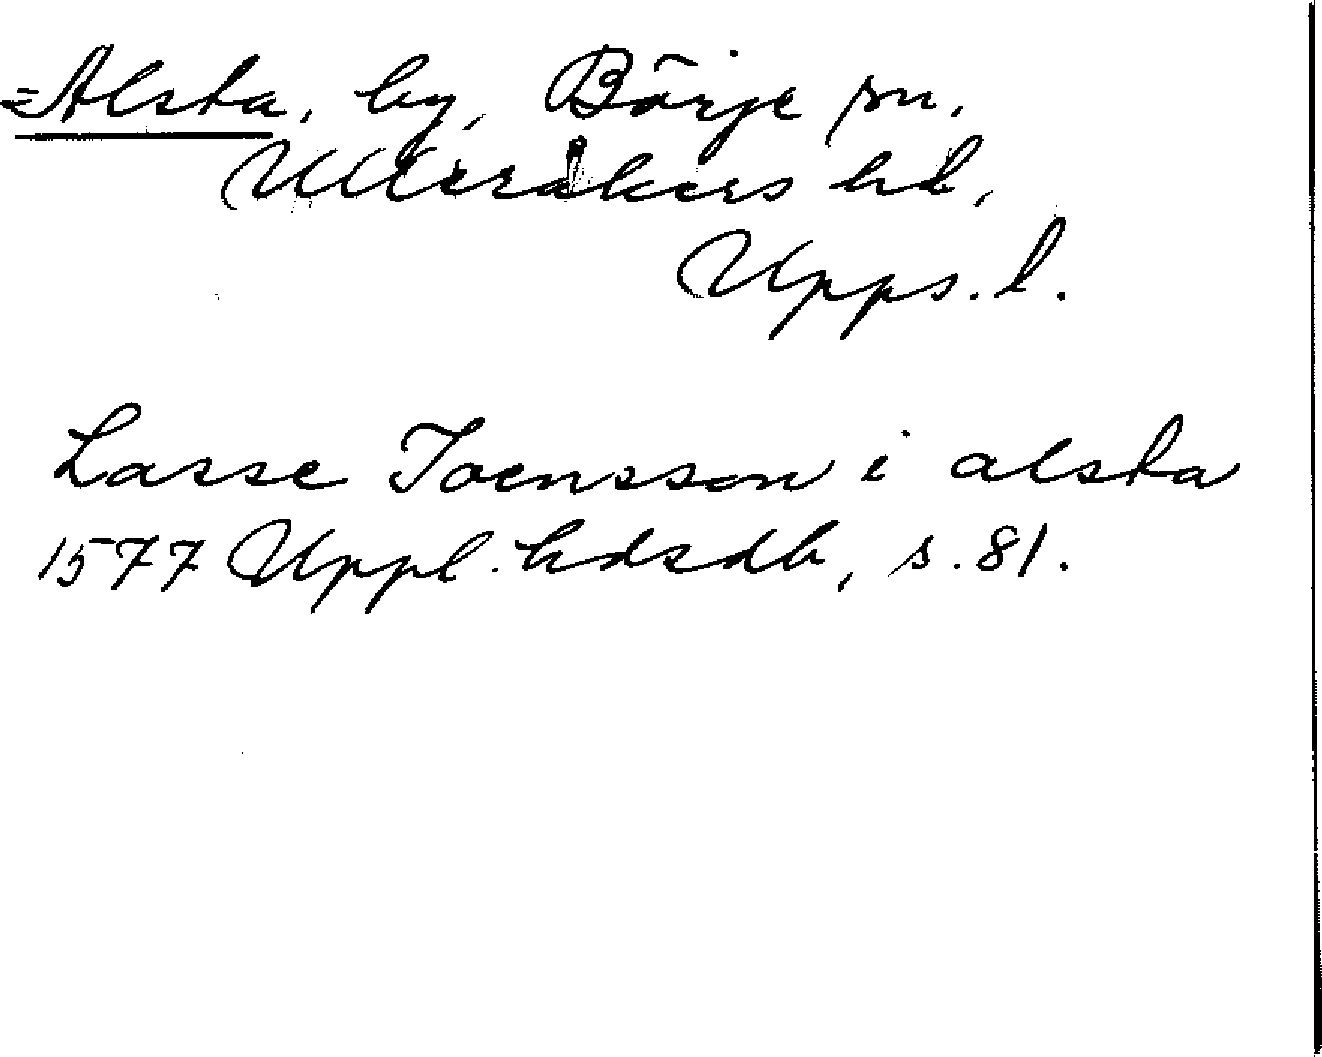 =Alsta, by, Börje sn.
Ulleråkers hd.
Upps. l.
Lasse Joensson i alsta
1577 Uppl. hdsdb, s. 81.